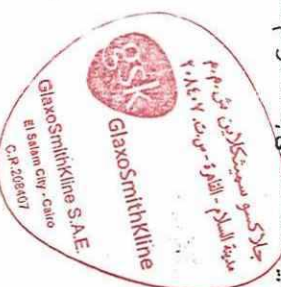 جلاكسو سميثكلاين ش.م.م
مدينة السلام - القاهرة - س.ت. ٢٠٨٤٠٧
gsk
GlaxoSmithKline
GlaxoSmithKline S.A.E.
El Salam City - Cairo
C.R.208407